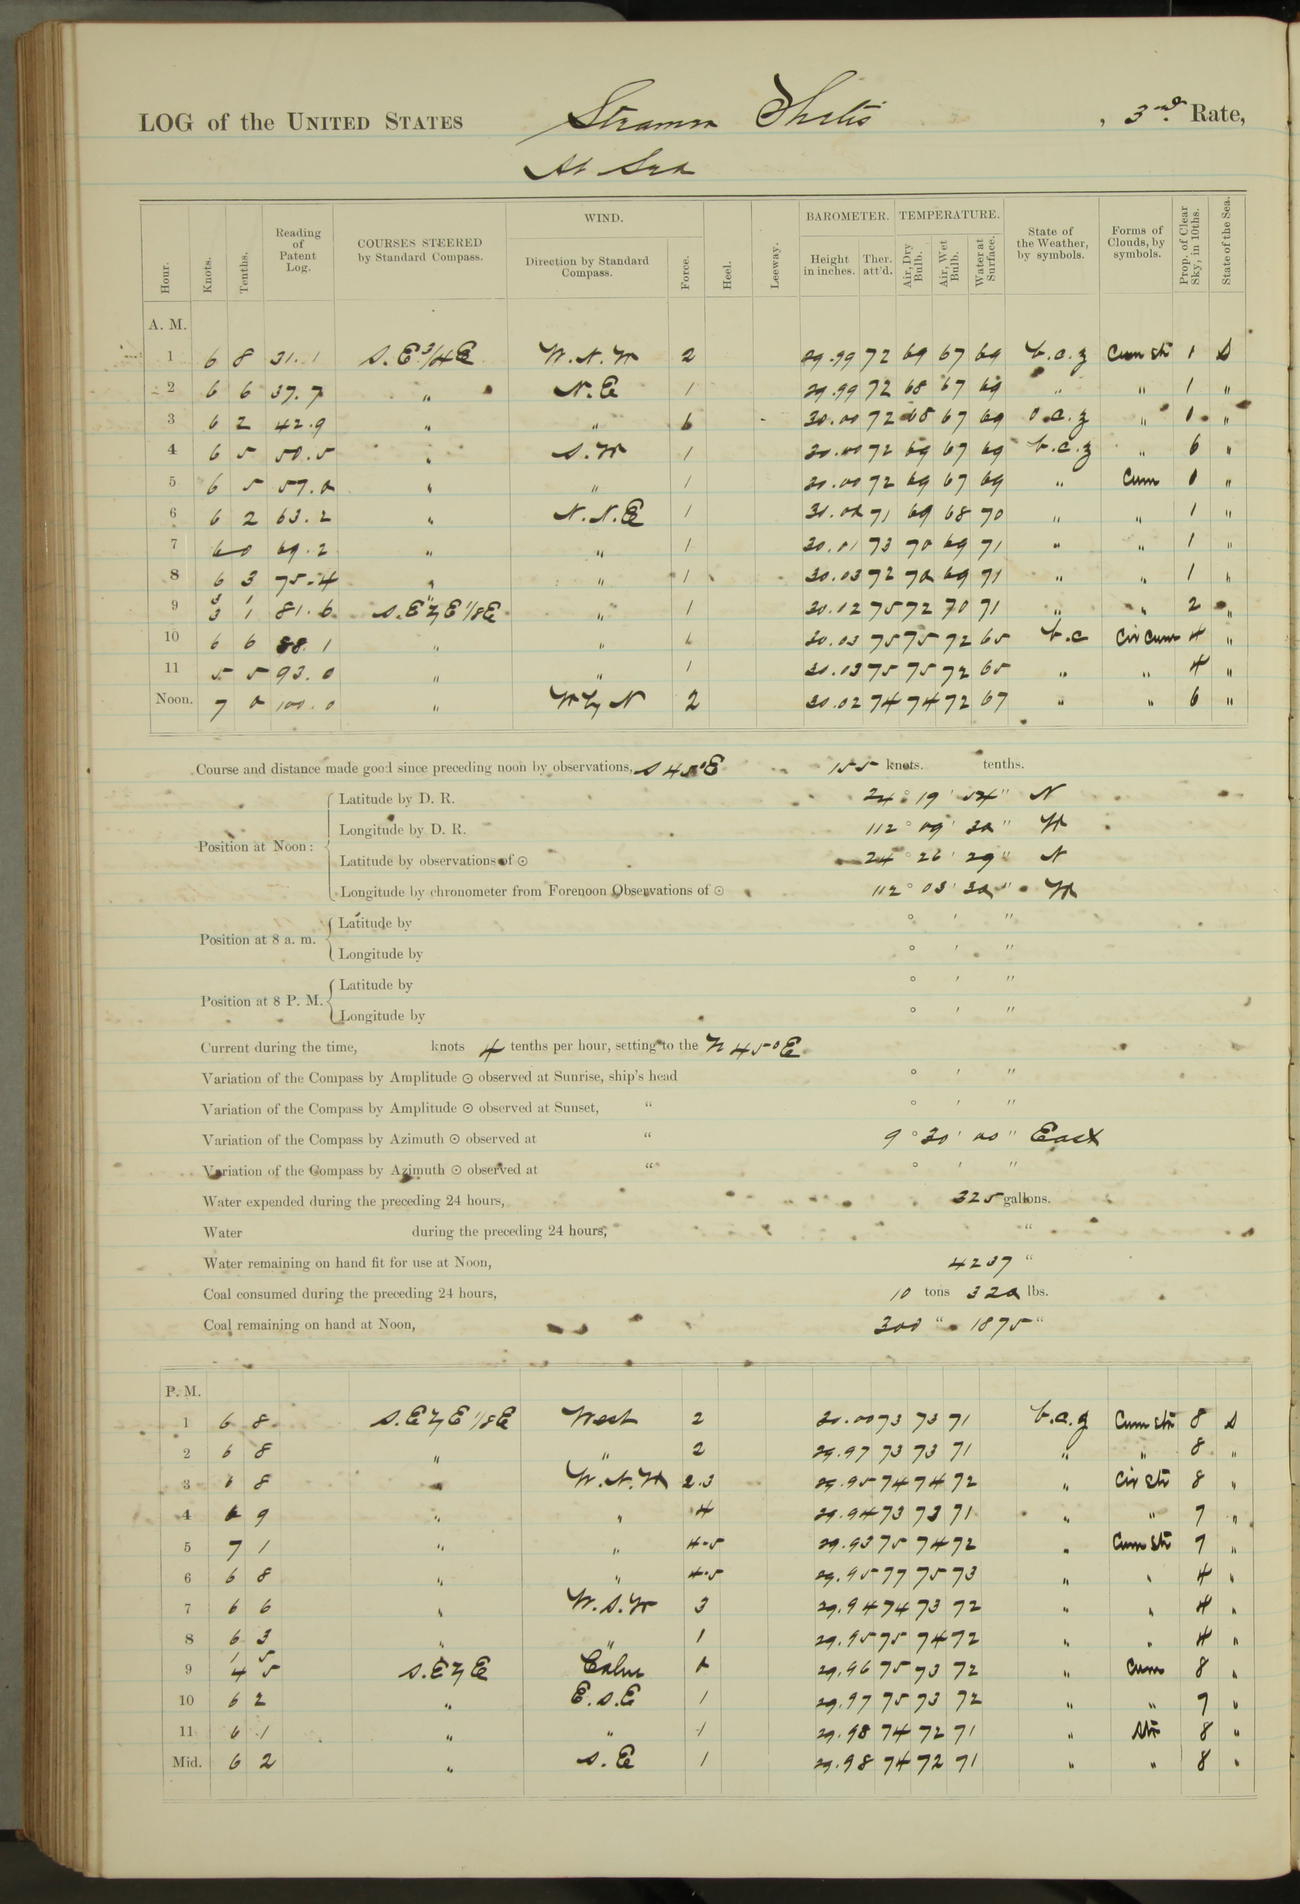 LOG of the UNITED STATES Steamer Thetis , 3rd Rate,
At Sea
WIND. BAROMETER. TEMPERATURE.
Hour. Knots. Tenths. Reading of Patent Log. COURSES STEERED by Standard Compass. Direction by Standard Compass. Force. Heel. Leeway. Height in inches. Ther. att'd. Air, Dry Bulb. Air, Wet Bulb. Water at Surface. State of the Weather, by symbols. Forms of Clouds, by symbols. Prop. of Clear Sky, in 10ths. State of the Sea.
A. M.
1 6 8 31.1 S.E 3/4 E W.N.W 2 29.99 72 69 67 69 b.c.z Cum Str 1 S
2 6 6 37.7 " N.E 1 29.99 72 68 67 69 " " 1 "
3 6 2 42.9 " " 30.00 72 68 67 69 o.c.z " 0 "
4 6 5 50.5 " S.W 1 30.00 72 69 67 69 b.c.z " 6 "
5 6 5 57.0 " " 1 30.00 72 69 67 69 " Cum 0 "
6 6 2 63.2 " N.N.E 1 30.00 71 69 68 70 " " 1 "
7 6 0 69.2 " " 1 30.01 73 70 69 71 " " 1 "
8 6 3 75.4 " " 1 30.03 72 70 69 71 " " 1 "
9 3 1 3 1 81.6 S.E by E 1/8 E " 1 30.12 75 72 70 71 " " 2 "
10 6 6 88.1 " " 30.03 75 75 72 65 b.c Cir Cum 4 "
11 5 5 93.0 " " 1 30.03 75 75 72 65 " " 4 "
Noon. 7 0 100.0 " W by N 2 30.02 74 74 72 67 " " 6 "
Course and distance made good since preceding noon by observations, S 45° E 155 knots. tenths.
Position at Noon: Latitude by D. R. 24 ° 19 ' 54 " N
Longitude by D. R. 112 ° 09 ' 30 " W
Latitude by observations of ☉ 24 ° 26 ' 29 " N
Longitude by chronometer from Forenoon Observations of ☉ 112 ° 03 ' 30 " W
Position at 8 a. m. Latitude by ° ' "
Longitude by ° ' "
Position at 8 P. M. Latitude by ° ' "
Longitude by ° ' "
Current during the time, knots 4 tenths per hour, setting to the N 45° E
Variation of the Compass by Amplitude ☉ observed at Sunrise, ship's head ° ' "
Variation of the Compass by Amplitude ☉ observed at Sunset, " ° ' "
Variation of the Compass by Azimuth ☉ observed at " 9 ° 30 ' 00 " East
Variation of the Compass by Azimuth ☉ observed at " ° ' "
Water expended during the preceding 24 hours, 325 gallons.
Water during the preceding 24 hours, "
Water remaining on hand fit for use at Noon, 4237 "
Coal consumed during the preceding 24 hours, 10 tons 320 lbs.
Coal remaining on hand at Noon, 300 " 1875 "
P. M.
1 6 8 S.E by E 1/8 E West 2 30.00 73 73 71 b.c.z Cum Str 8 S
2 6 8 " " 2 29.97 73 73 71 " " 8 "
3 6 8 " W.N.W 2.3 29.95 74 74 72 " Cir Str 8 "
4 6 9 " " 4 29.94 73 73 71 " " 7 "
5 7 1 " " 4-5 29.93 75 74 72 " Cum Str 7 "
6 6 8 " " 4-5 29.95 77 75 73 " " 4 "
7 6 6 " W.S.W 3 29.94 74 73 72 " " 4 "
8 6 3 " " 1 29.95 75 74 72 " " 4 "
9 1 5 4 5 S.E by E Calm 0 29.96 75 73 72 " Cum 8 "
10 6 2 " E.S.E 1 29.97 75 73 72 " " 7 "
11 6 1 " " 1 29.98 74 72 71 " Str 8 "
Mid. 6 2 " S.E 1 29.98 74 72 71 " " 8 "